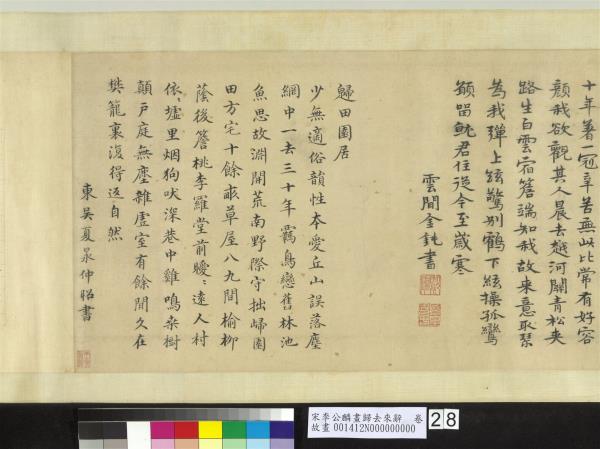 十年著一冠辛苦無此比常有好容
顏我欲觀其人晨去越河關青松夾
路生白雲宿簷端知我故來意取琴
為我彈上絃驚別鶴下絃操孤鸞
願留就君住從今至歲寒
雲間金鈍書
歸田園居
少無適俗韻性本愛丘山誤落塵
網中一去三十年羇鳥戀舊林池
魚思故淵開荒南野際守拙歸園
田方宅十餘畝草屋八九間榆柳
蔭後簷桃李羅堂前曖〻遠人村
依〻墟里烟狗吠深巷中雞鳴桑樹
顛戶庭無塵雜虛室有餘閒久在
樊籠裏復得返自然
東吳夏昺仲昭書
宋李公麟畫歸去來辭 卷
故畫 001412N000000000
28